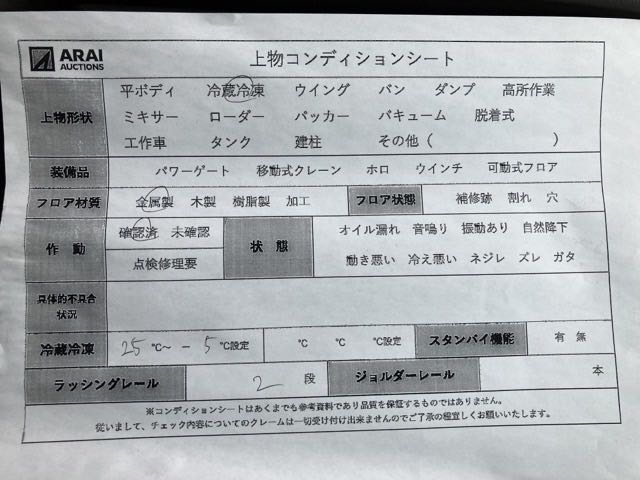 ARAI
AUCTIONS
上物コンディションシート
上物形状
平ボディ 冷蔵冷凍 ウイング バン ダンプ 高所作業
ミキサー ローダー パッカー バキューム 脱着式
工作車 タンク 建柱 その他( )
装備品 パワーゲート 移動式クレーン ホロ ウインチ 可動式フロア
フロア材質 金属製 木製 樹脂製 加工 フロア状態 補修跡 割れ 穴
作動 確認済 未確認 状態 オイル漏れ 音鳴り 振動あり 自然降下
点検修理要 動き悪い 冷え悪い ネジレ ズレ ガタ
具体的不具合
状況
冷蔵冷凍 25℃〜-5℃設定 ℃ ℃ ℃設定 スタンバイ機能 有 無
ラッシングレール 2段 ジョルダーレール 本
※コンディションシートはあくまでも参考資料であり品質を保証するものではありません。
従いまして、チェック内容についてのクレームは一切受け付け出来ませんのでご了承の程宜しくお願いいたします。